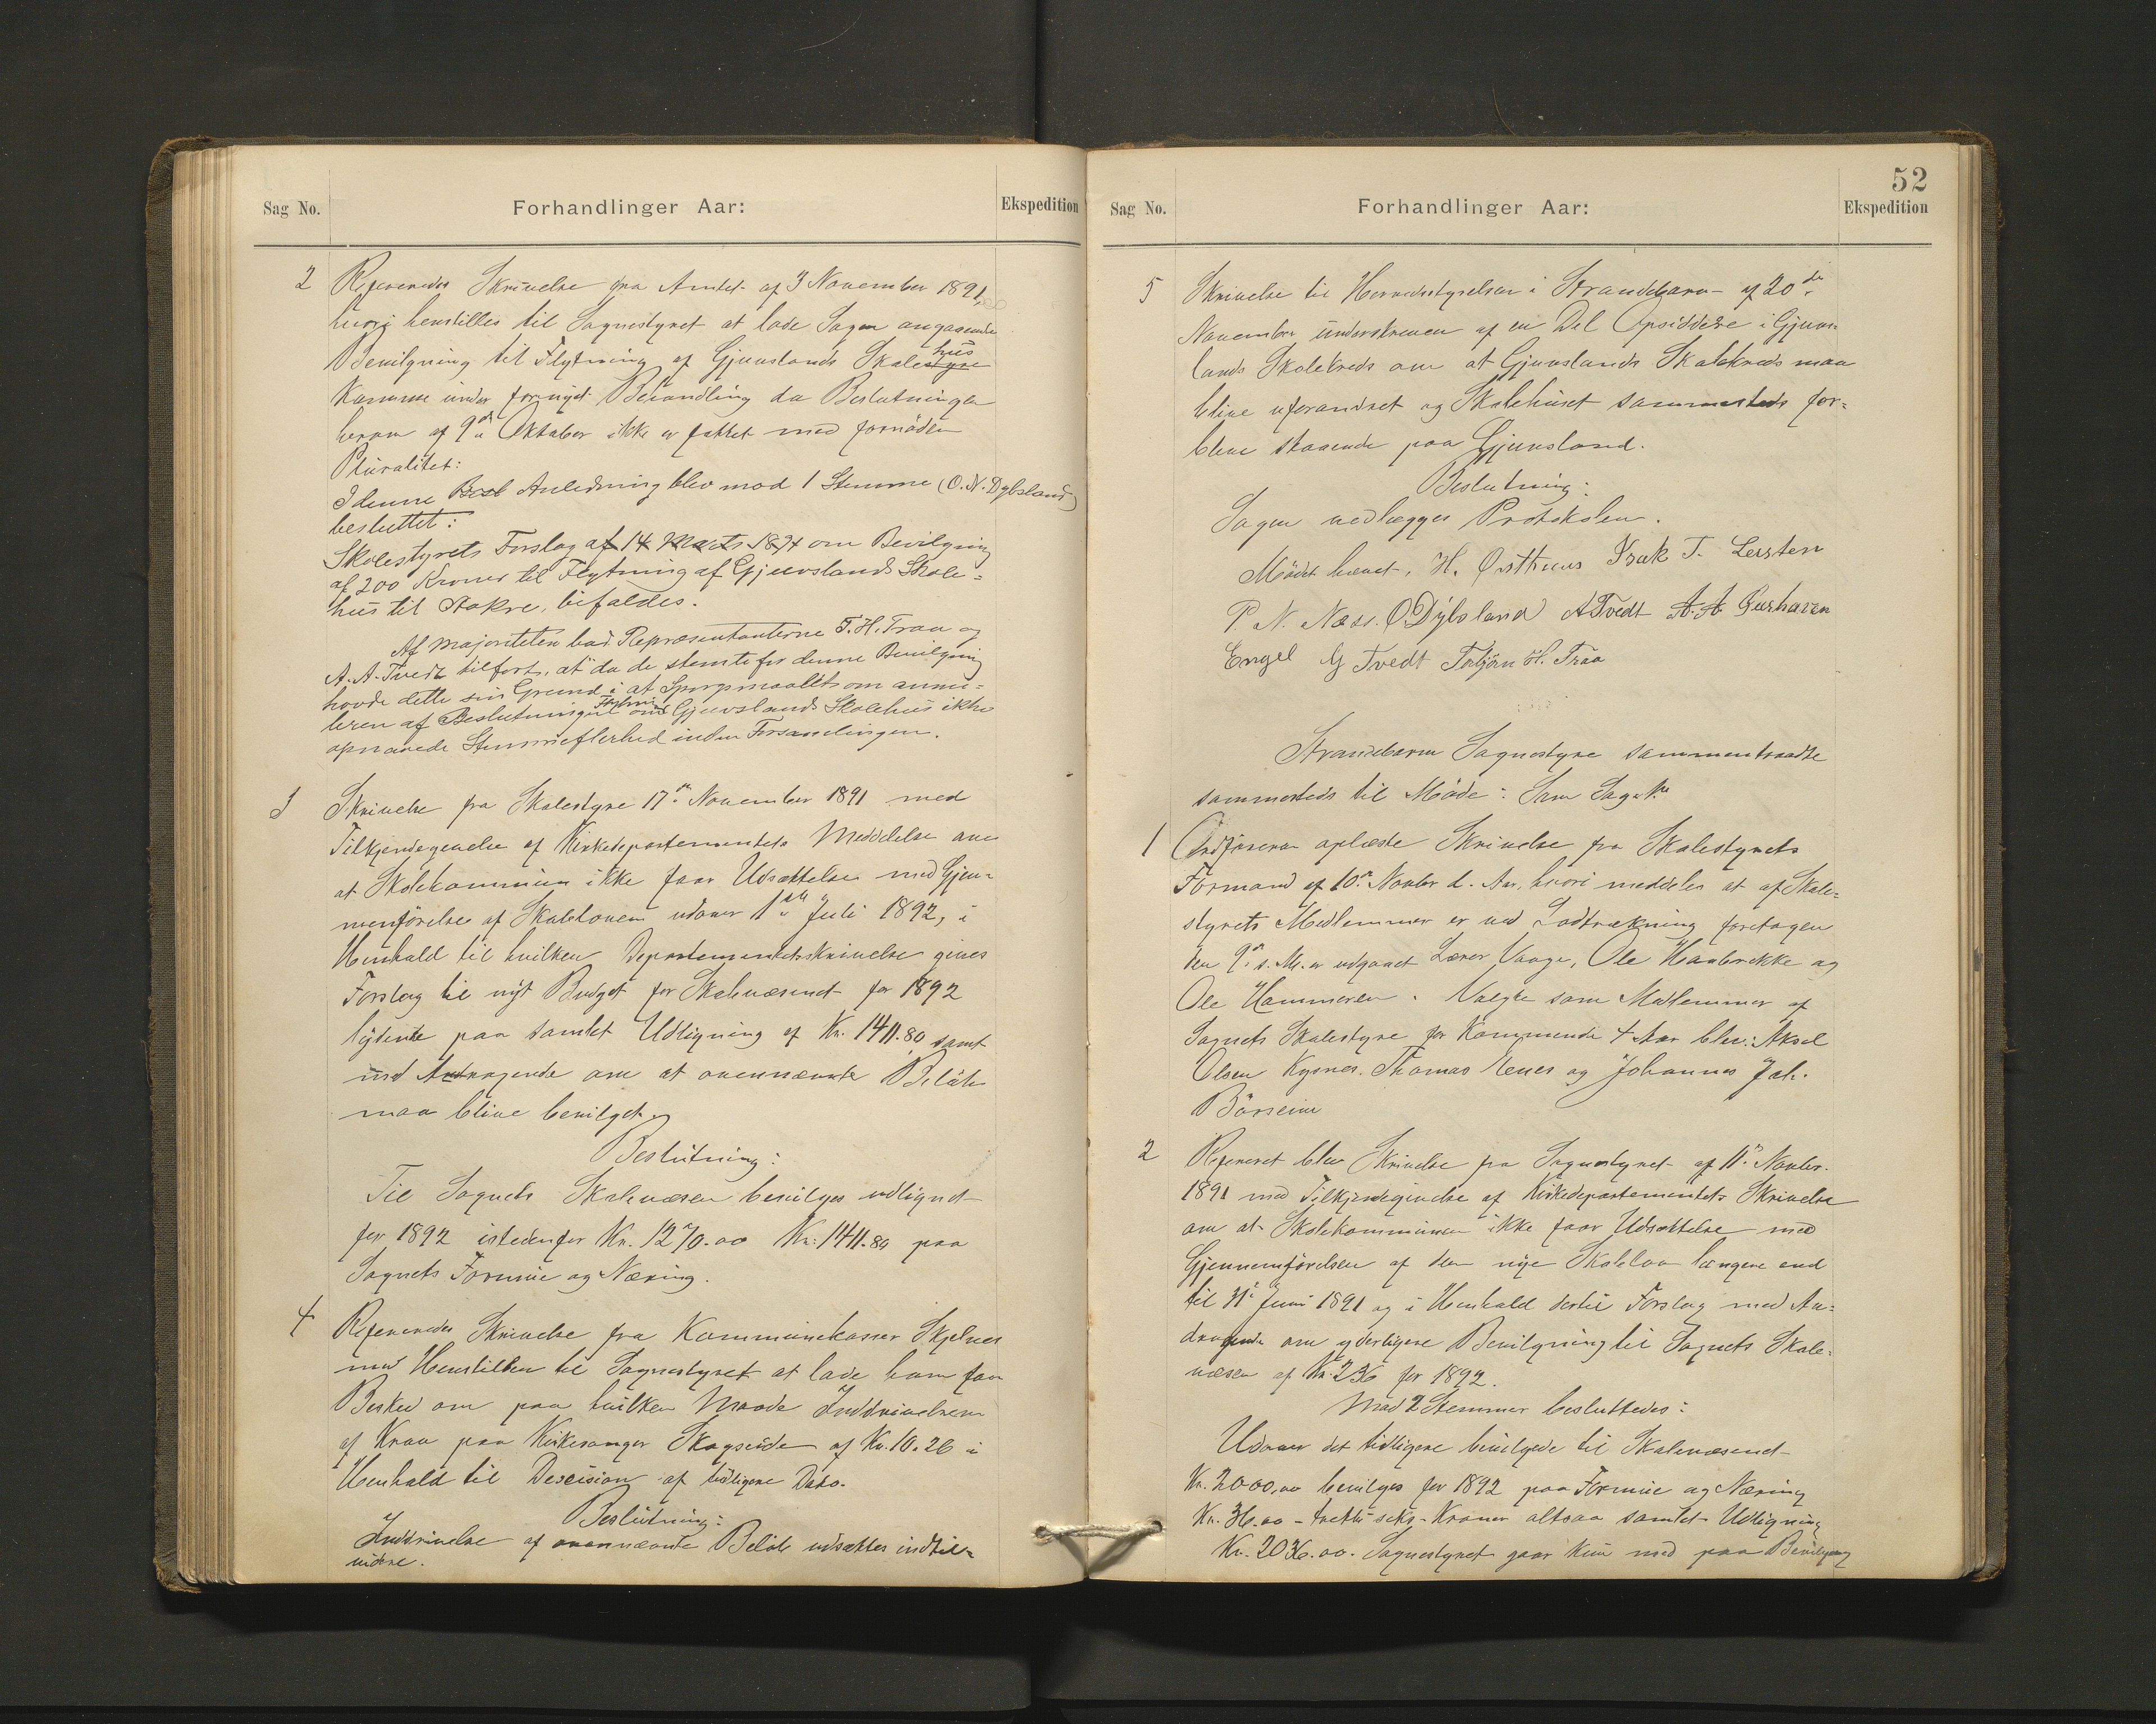 Sag No.
Forhandlinger Aar:
Ekspedition
2 Refereredes Skrivelse fra Amtet af 3 November 1891,
hvori henstilles til Sognestyret at lade Sagen angaaende
Bevilgning til Flytning af Gjuvslands Skolestyre hus
komme under fornyet Behandling da Beslutningen
herom af 9de Oktober ikke er fattet med fornøden
Pluralitet:
I denne Besl Anledning blev mod 1 Stemme (O. N. Dybsland)
besluttet:
Skolestyrets Forslag af 14 Marts 1891 om Bevilgning
af 200 Kroner til Flytning af Gjuvslands Skole=
hus til Aakre, bifaldes.
Af majoriteten bad Repræsentanterne T. H. Traa og
A. A. Tvedt tilført, at da de stemte for denne Bevilgning
havde dette sin Grund i at Spørgsmaalet om annu=
leren af Beslutningen om Flytning Gjuvslands Skolehus ikke
opnaaede Stemmeflerhed inden Forsamlingen.
3 Skrivelse fra Skolestyre 17de November 1891 med
Tilkjendegivelse af Kirkedepartementets Meddelelse om
at Skolekommunen ikke faar Udsættelse med Gjen=
nemførelse af Skoleloven udover 1ste Juli 1892, i
Henhold til hvilken Departementsskrivelse gives
Forslag til nyt Budget for Skolevæsenet for 1892
lydende paa samlet Udligning af Kr. 1411.80 samt
med Andragende om at ovennævnte Beløb
maa blive bevilget.
Beslutning:
Til Sognets Skolevæsen bevilges udlignet
for 1892 istedenfor Kr. 1270.00 Kr. 1411.80 paa
Sognets Formue og Næring.
4 Refereredes Skrivelse fra Kommunekasser Skjelnes
med Henstillen til Sognestyret at lade ham faa
Besked om paa hvilken Maade Inddrivelsen
af Krav paa Kirkesanger Skogseide af Kr. 10.26 i
Henhold til Descision af tidligere Dato.
Beslutning:
Inddrivelse af ovennævnte Beløb udsættes indtil=
videre.
52
Sag No.
Forhandlinger Aar:
Ekspedition
5 Skrivelse til Herredsstyrelsen i Strandebarm af 20de
November underskreven af en Del Opsiddere i Gjuvs=
lands Skolekreds om at Gjuvslands Skolekreds maa
blive uforandret og Skolehuset sammesteds for=
blive staaende paa Gjuvsland.
Beslutning:
Sagen vedlægges Protokolen.
Mødet hævet. H. Østhuus Isak T. Lersten
P. N. Næss. O. Dybsland A Tvedt A. A.
Engel G Tvedt Torbjørn H. Traa
Strandebarm Sognestyre sammentraadte
sammesteds til Møde: Som Sag No
1 Ordføreren oplæste Skrivelse fra Skolestyrets
Formand af 10de Novbr d. Aar, hvori meddeles at af Skole=
styrets Medlemmer er ved Lodtrækning foretagen
den 9de s. M. er udgaaet Lærer Vaage, Ole Haabrekke og
Ole Hammeren. Valgte som Medlemmer af
Sognets Skolestyre for kommende 4 Aar blev: Aksel
Olsen Kysnes. Thomas Nenes og Johannes Joh.
Børseim
2 Refereret blev Skrivelse fra Sognestyret af 11te Novbr.
1891 med Tilkjendegivelse af Kirkedepartementets Skrivelse
om at Skolekommunen ikke faar Udsættelse med
Gjennemførelsen af den nye Skolelov længere end
til Juni 1891 og i Henhold dertil Forslag med An=
dragende om yderligere Bevilgning til Sognets Skole=
væsen af Kr. 236 for 1892.
Mod 2 Stemmer besluttedes:
Udover det tidligere bevilgede til Skolevæsenet
Kr. 2000,00 bevilges for 1892 paa Formue og Næring
Kr. 36.00 – tretti seks – Kroner altsaa samlet Udligning
Kr. 2036.00. Sognestyret gaar kun med paa Bevilgning